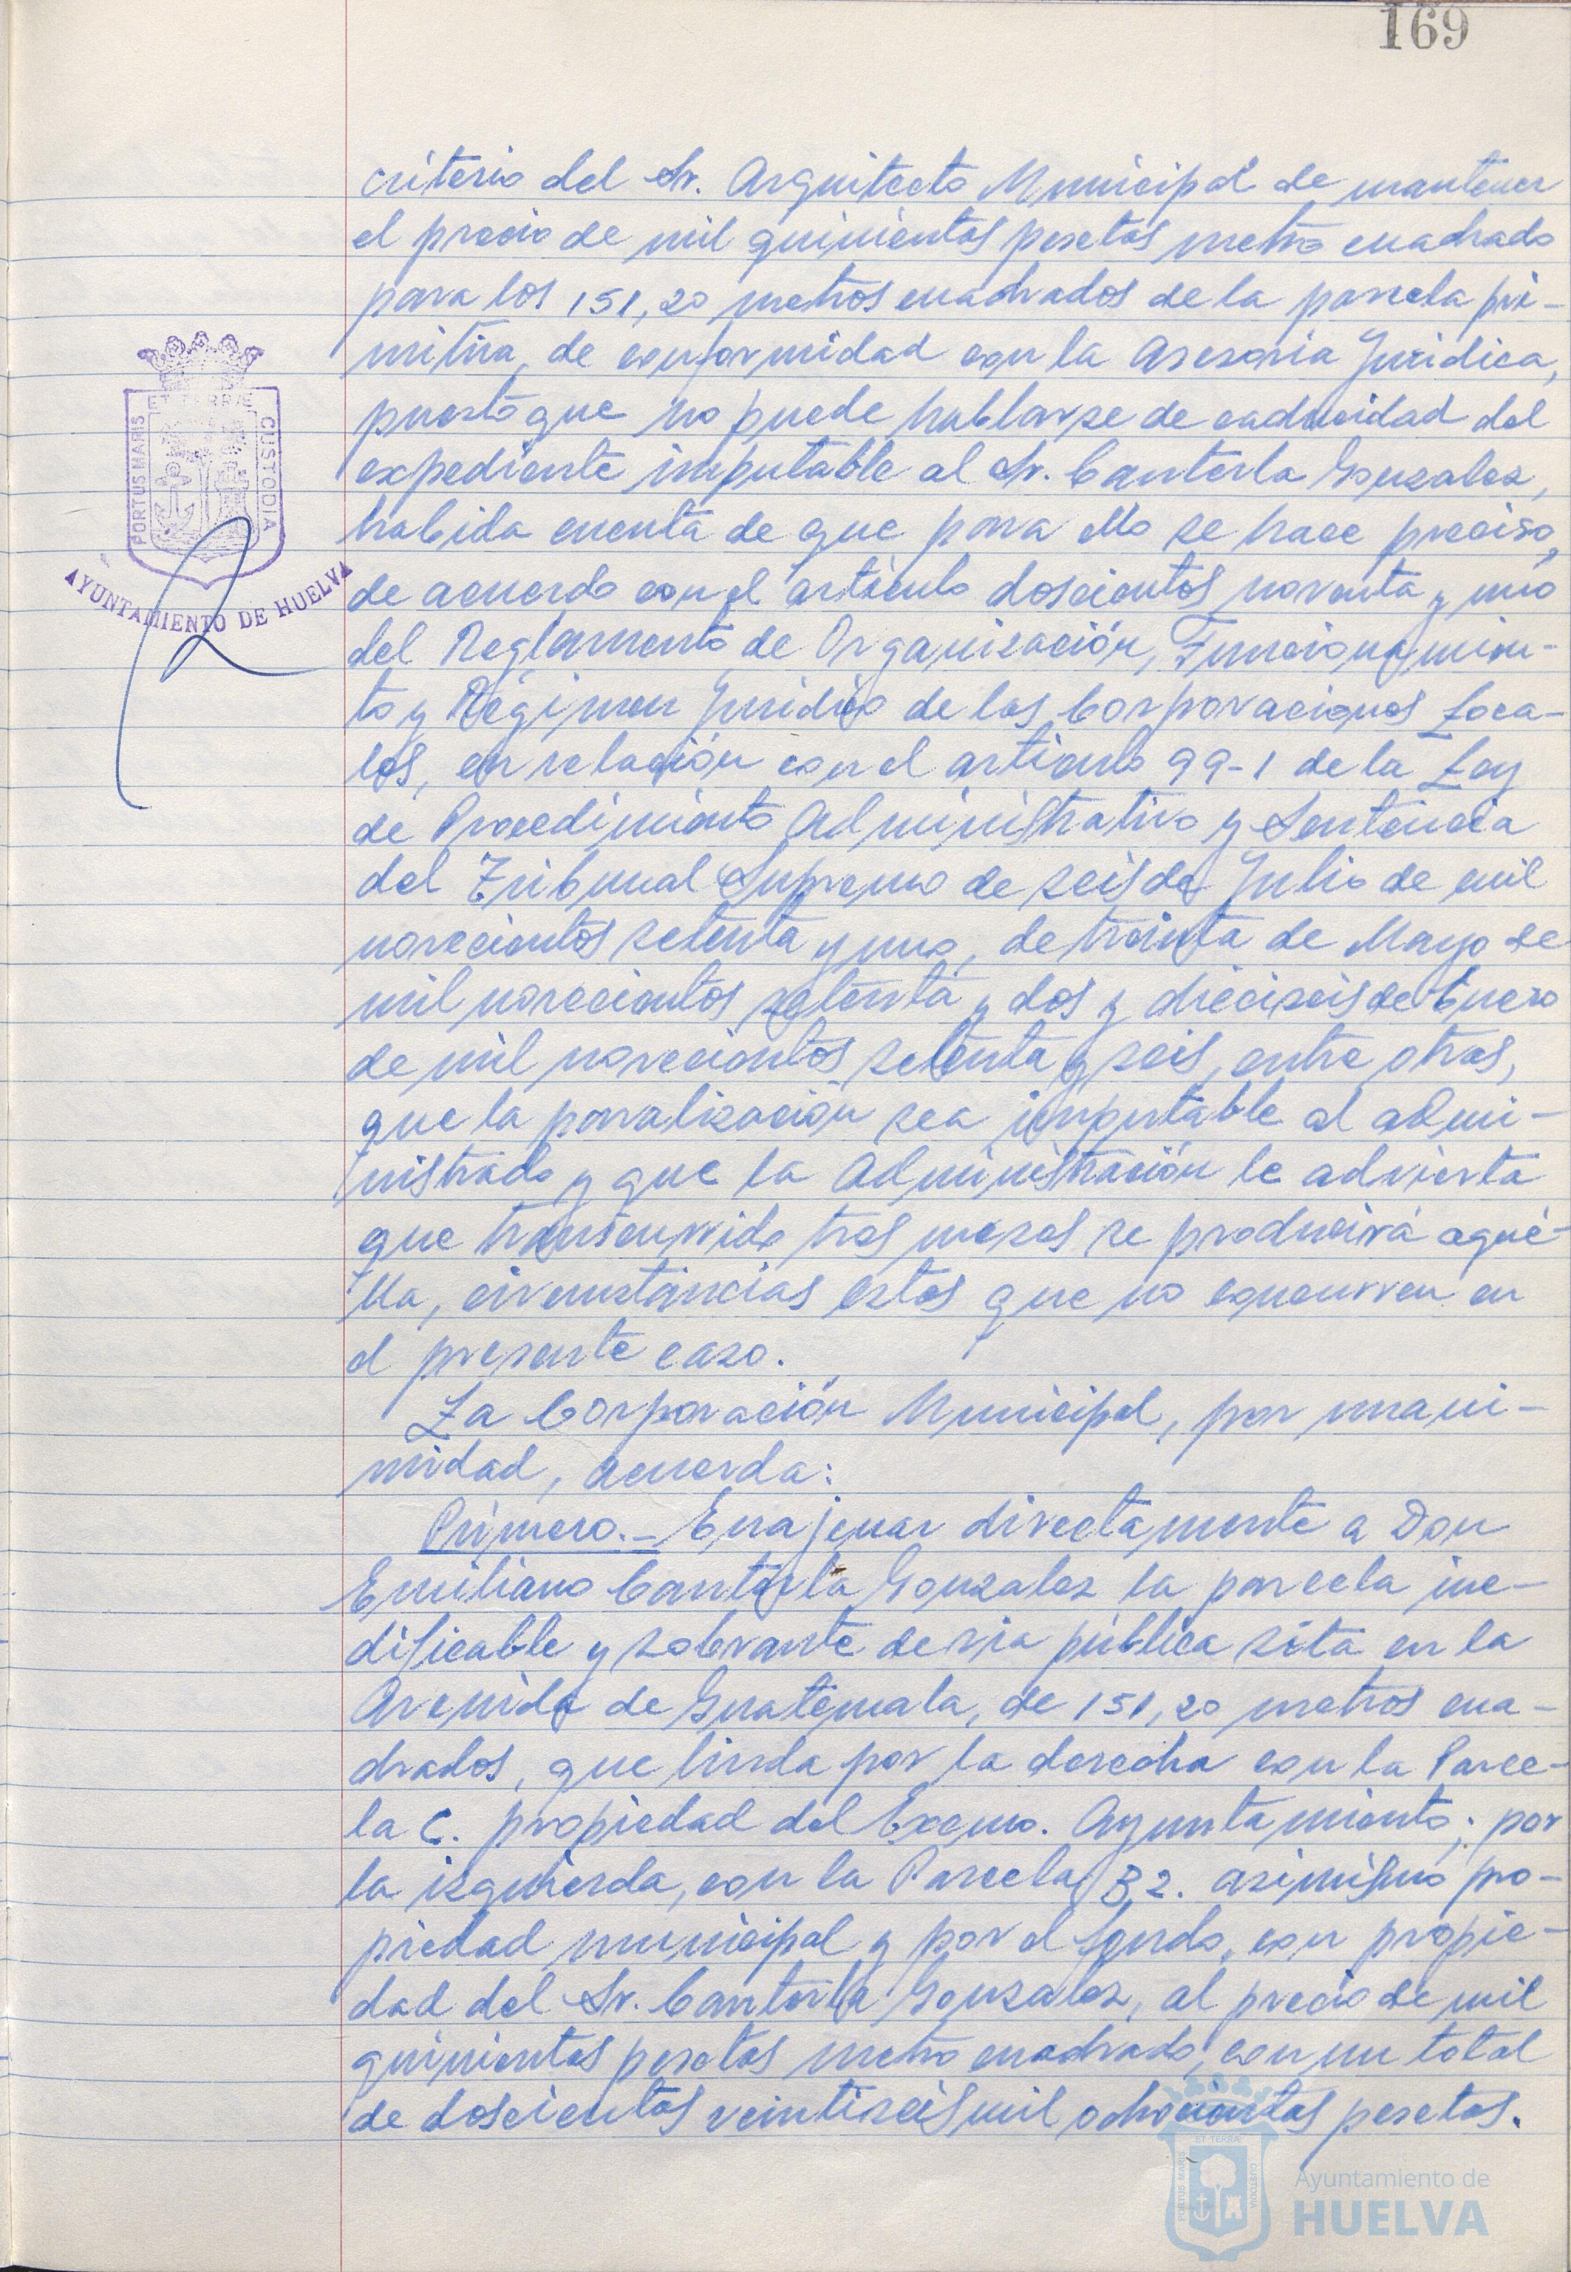 169
criterio del Sr. Arquitecto Municipal de mantener
el precio de mil quinientas pesetas metro cuadrado
para los 151,20 metros cuadrados de la parcela pri-
mitiva, de conformidad con la Asesoria Juridica,
puesto que no puede hablarse de caducidad del
expediente imputable al Sr. Canterla Gonzalez,
habida cuenta de que para ello se hace preciso,
de acuerdo con el articulo doscientos noventa y uno
del Reglamento de Organización, Funcionamien-
to y Régimen Juridico de las Corporaciones Loca-
les, en relación con el articulo 99-1 de la Ley
de Procedimiento Administrativo y Sentencia
del Tribunal Supremo de seis de Julio de mil
novecientos setenta y uno, de treinta de Mayo de
mil novecientos setenta y dos y dieciseis de Enero
de mil novecientos setenta y seis, entre otras,
que la paralización sea imputable al admi-
nistrado y que la Administración le advierta
que transcurrido tres meses se producirá aqué-
lla, circunstancias estas que no concurren en
el presente caso.
La Corporación Municipal, por unani-
midad, acuerda:
Primero.- Enajenar directamente a Don
Emiliano Canterla Gonzalez la parcela ine-
dificable y sobrante de via pública sita en la
Avenida de Guatemala, de 151,20 metros cua-
drados, que linda por la derecha con la Parce-
la C. propiedad del Excmo. Ayuntamiento; por
la izquierda, con la Parcela B2. asimismo pro-
piedad municipal y por el fondo, con propie-
dad del Sr. Canterla Gonzalez, al precio de mil
quinientas pesetas metro cuadrado, con un total
de doscientas veintiseis mil ochocientas pesetas.
PORTUS MARIS
ET TERRÆ
CUSTODIA
AYUNTAMIENTO DE HUELVA
PORTUS MARIS
ET TERRÆ
CUSTODIA
Ayuntamiento de
HUELVA